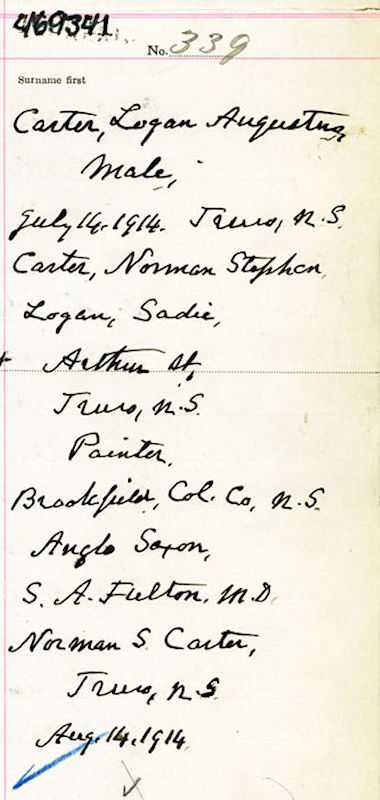 469341
No. 339
Surname first
Carter, Logan Augustus,
Male,
July 14, 1914. Truro, N.S.
Carter, Norman Stephen,
Logan, Sadie,
Arthur St,
Truro, N.S.
Painter,
Brookfield, Col. Co, N.S.
Anglo Saxon,
S. A. Fulton, M.D.
Norman S. Carter,
Truro, N.S
Aug. 14, 1914